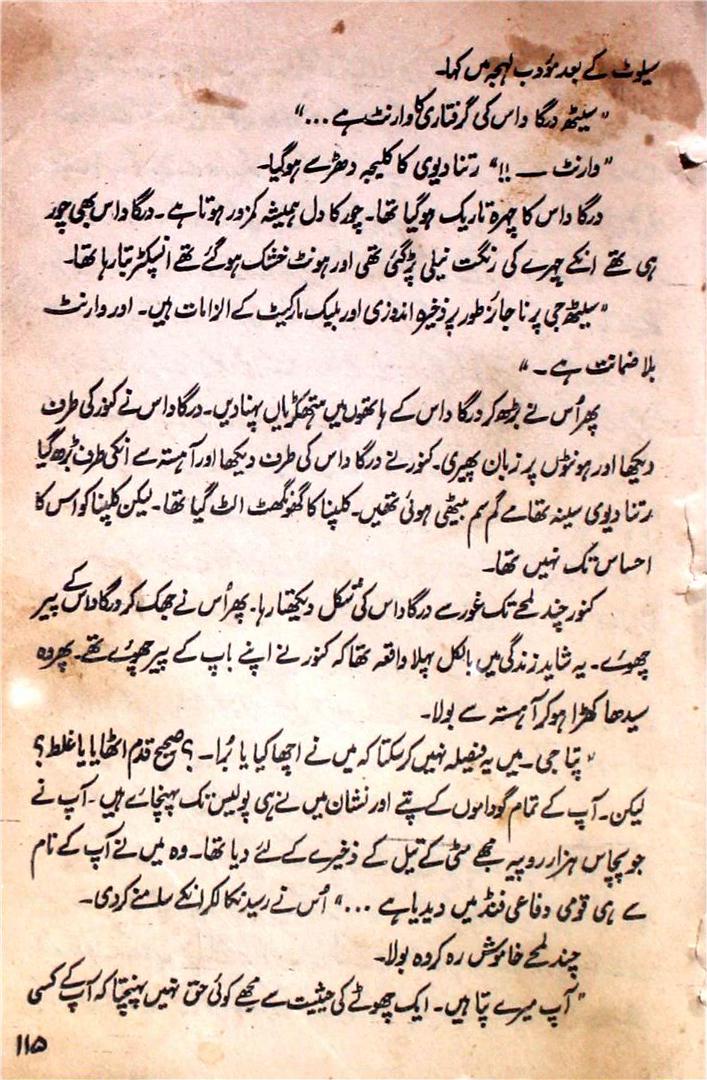 سیلوٹ کے بعد مؤدب لہجہ میں کہا۔
”سیٹھ درگا داس کی گرفتاری کا وارنٹ ہے ...“
”وارنٹ — !!“ رتنا دیوی کا کلیجہ دھڑے ہوگیا۔
درگا داس کا چہرہ تاریک ہوگیا تھا۔ چور کا دل ہمیشہ کمزور ہوتا ہے۔ درگا داس بھی چور
ہی تھے انکے چہرے کی رنگت نیلی پڑگئی تھی اور ہونٹ خشک ہوگئے تھے انسپکٹر بتا رہا تھا۔
”سیٹھ جی پر ناجائز طور پر ذخیرہ اندوزی اور بلیک مارکیٹ کے الزامات ہیں۔ اور وارنٹ
بلا ضمانت ہے۔“
پھر اُس نے بڑھ کر درگا داس کے ہاتھوں میں ہتھکڑیاں پہنا دیں۔ درگا داس نے کنور کی طرف
دیکھا اور ہونٹوں پر زبان پھیری۔ کنور نے درگا داس کی طرف دیکھا اور آہستہ سے انکی طرف بڑھ گیا
رتنا دیوی سینہ تھامے گم سم بیٹھی ہوئی تھیں۔ کلپنا کا گھونگھٹ الٹ گیا تھا۔ لیکن کلپنا کو اس کا
احساس تک نہیں تھا۔
کنور چند لمحے تک غور سے درگا داس کی شکل دیکھتا رہا۔ پھر اُس نے جھک کر درگا داس کے پیر
چھوئے۔ یہ شاید زندگی میں بالکل پہلا واقعہ تھا کہ کنور نے اپنے باپ کے پیر چھوئے تھے۔ پھر وہ
سیدھا کھڑا ہوکر آہستہ سے بولا۔
”پتا جی۔ میں یہ فیصلہ نہیں کرسکتا کہ میں نے اچھا کیا یا بُرا۔؟ صحیح قدم اٹھایا یا غلط؟
لیکن۔ آپ کے تمام گوداموں کے پتے اور نشان میں نے ہی پولیس تک پہنچائے ہیں۔ آپ نے
جو پچاس ہزار روپیہ مجھے مٹی کے تیل کے ذخیرے کے لئے دیا تھا۔ وہ میں نے آپ کے نام
سے ہی قومی دفاعی فنڈ میں دیدیا ہے ...“ اُس نے رسید نکال کر انکے سامنے کردی۔
چند لمحے خاموش رہ کر وہ بولا۔
”آپ میرے پتا ہیں۔ ایک چھوٹے کی حیثیت سے مجھے کوئی حق نہیں پہنچتا کہ آپ کے کسی
۱۱۵